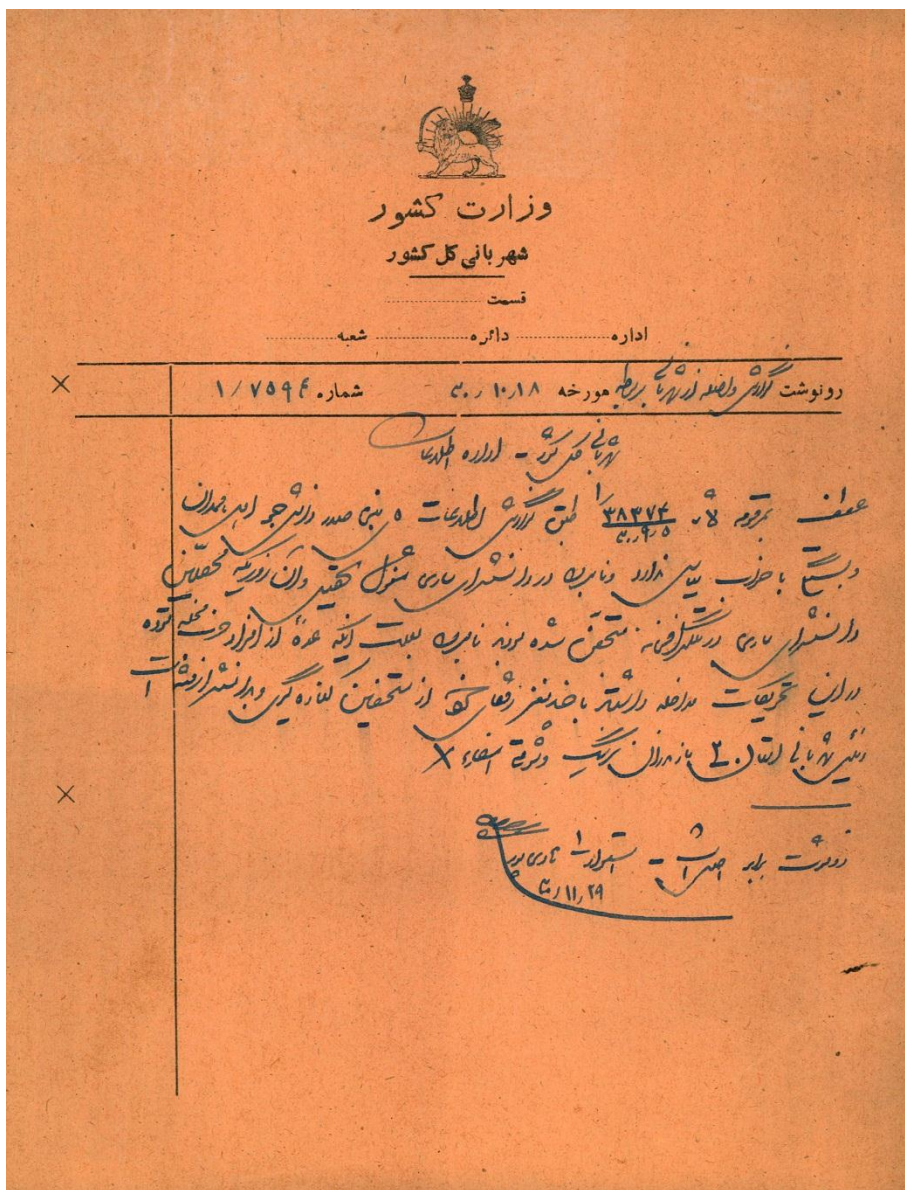 وزارت کشور
شهربانی کل کشور
قسمت
اداره دائره شعبه
رونوشت گزارش واصله از شهربانی مورخه ۳۰٫۱۰٫۱۸ شماره ۱/۷۵۹۴
شهربانی کل کشور - اداره اطلاعات
عطف بمرقومه ۳۸۳۷۴ ۳۰٫۹٫۵ طبق گزارش اطلاعات صدر دانش اهل همدان
وبستگی با حزب سیاسی ندارد و نامبرده در دانشسرای ساری مشغول تحصیل و آن روزیکه محصلین
دانشسرای ساری در تلگرافخانه متحصن شده بودند نامبرده بعلت اینکه عده از افراد حزب منحله توده
در این تحریکات مداخله داشتند با چند نفر رفقای از متحصنین کناره گیری و بدانشسرا رفته است
رئیس شهربانی استان ۲ مازندران سرهنگ امضاء
رونوشت برابر اصل است -
۳۰٫۱۱٫۲۹